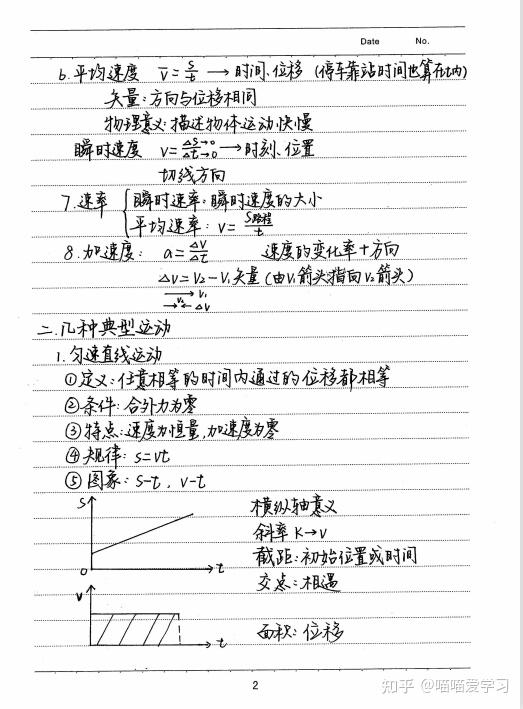 Date No.
6.平均速度 v̄=s/t →时间、位移 (停车靠站时间也算在t内)
矢量:方向与位移相同
物理意义:描述物体运动快慢
瞬时速度 v=Δs→0/Δt→0 →时刻、位置
切线方向
7.速率 { 瞬时速率:瞬时速度的大小
平均速率:v=S路程/t
8.加速度: a=Δv/Δt 速度的变化率+方向
Δv=v₂-v₁ 矢量(由v₁箭头指向v₂箭头)
v₁
v₂ Δv
二.几种典型运动
1.匀速直线运动
①定义:任意相等的时间内通过的位移都相等
②条件:合外力为零
③特点:速度为恒量,加速度为零
④规律:s=vt
⑤图象:s-t, v-t
s
横纵轴意义
斜率 K→v
截距:初始位置或时间
o t
交点:相遇
v
面积:位移
t
2
知乎 @喵喵爱学习